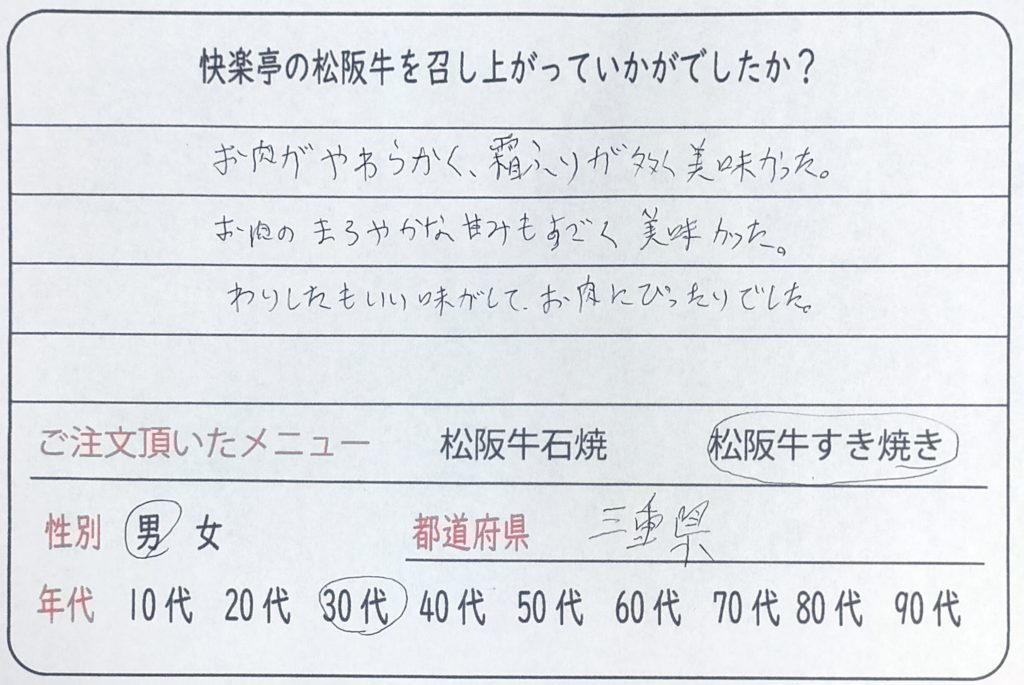 快楽亭の松阪牛を召し上がっていかがでしたか？
お肉がやわらかく、霜ふりが多く美味かった。
お肉のまろやかな甘みもすごく美味かった。
わりしたもいい味がして、お肉にぴったりでした。
ご注文頂いたメニュー 松阪牛石焼 松阪牛すき焼き
性別 男 女 都道府県 三重県
年代 10代 20代 30代 40代 50代 60代 70代 80代 90代